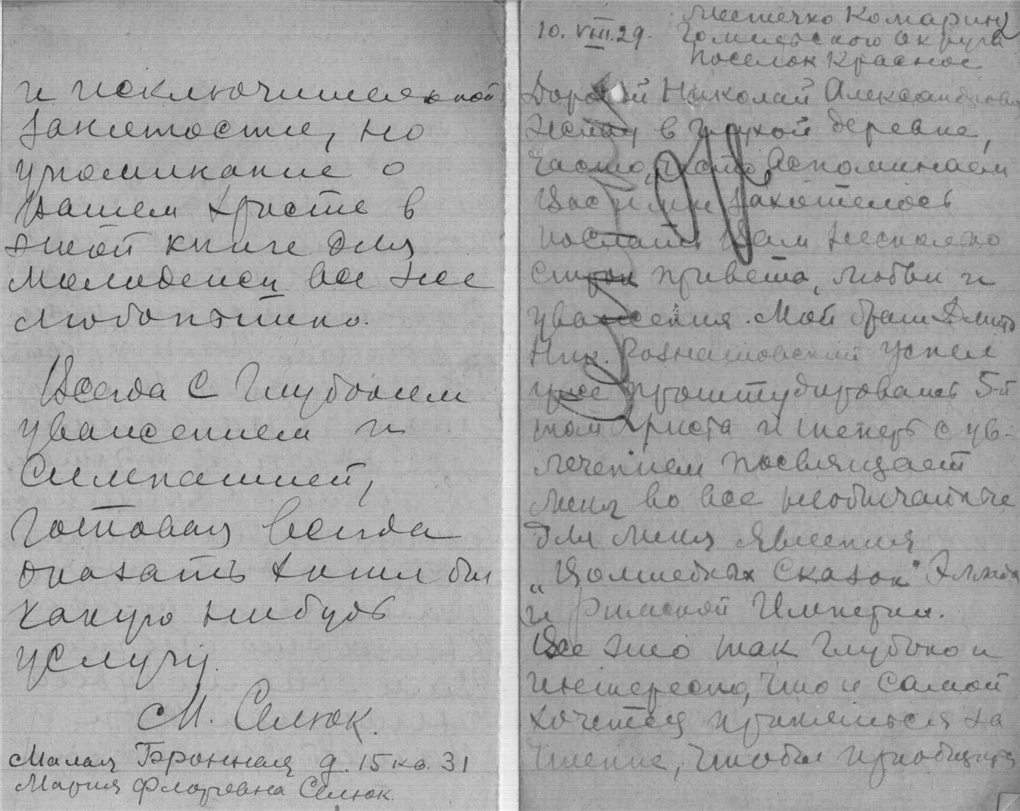 и исключительной
занятости, но
упоминание о
Вашем Христе в
этой книге для
молодежи все же
любопытно.
Всегда с глубоким
уважением и
симпатией,
готовая всегда
оказать хотя бы
какую нибудь
услугу
М. Селюк.
Малая Бронная д. 15 кв. 31
Мария Флоровна Селюк.
Местечко Комарин
10. VIII. 29. Гомельского округа
поселок Красное
Дорогой Николай Александрович
Живу в глухой деревне,
часто, часто вспоминаем
Вас и мне захотелось
послать Вам несколько
строк привета, любви и
уважения. Мой брат
Ник. успел
уже проштудировать 5-й
том Христа и теперь с ув-
лечением посвящает
меня во все необычайные
для меня явления
„Волшебных Сказок" Эллады
и Римской Империи.
Все это так глубоко и
интересно, что и самой
хочется приняться за
чтение, чтобы приобщить